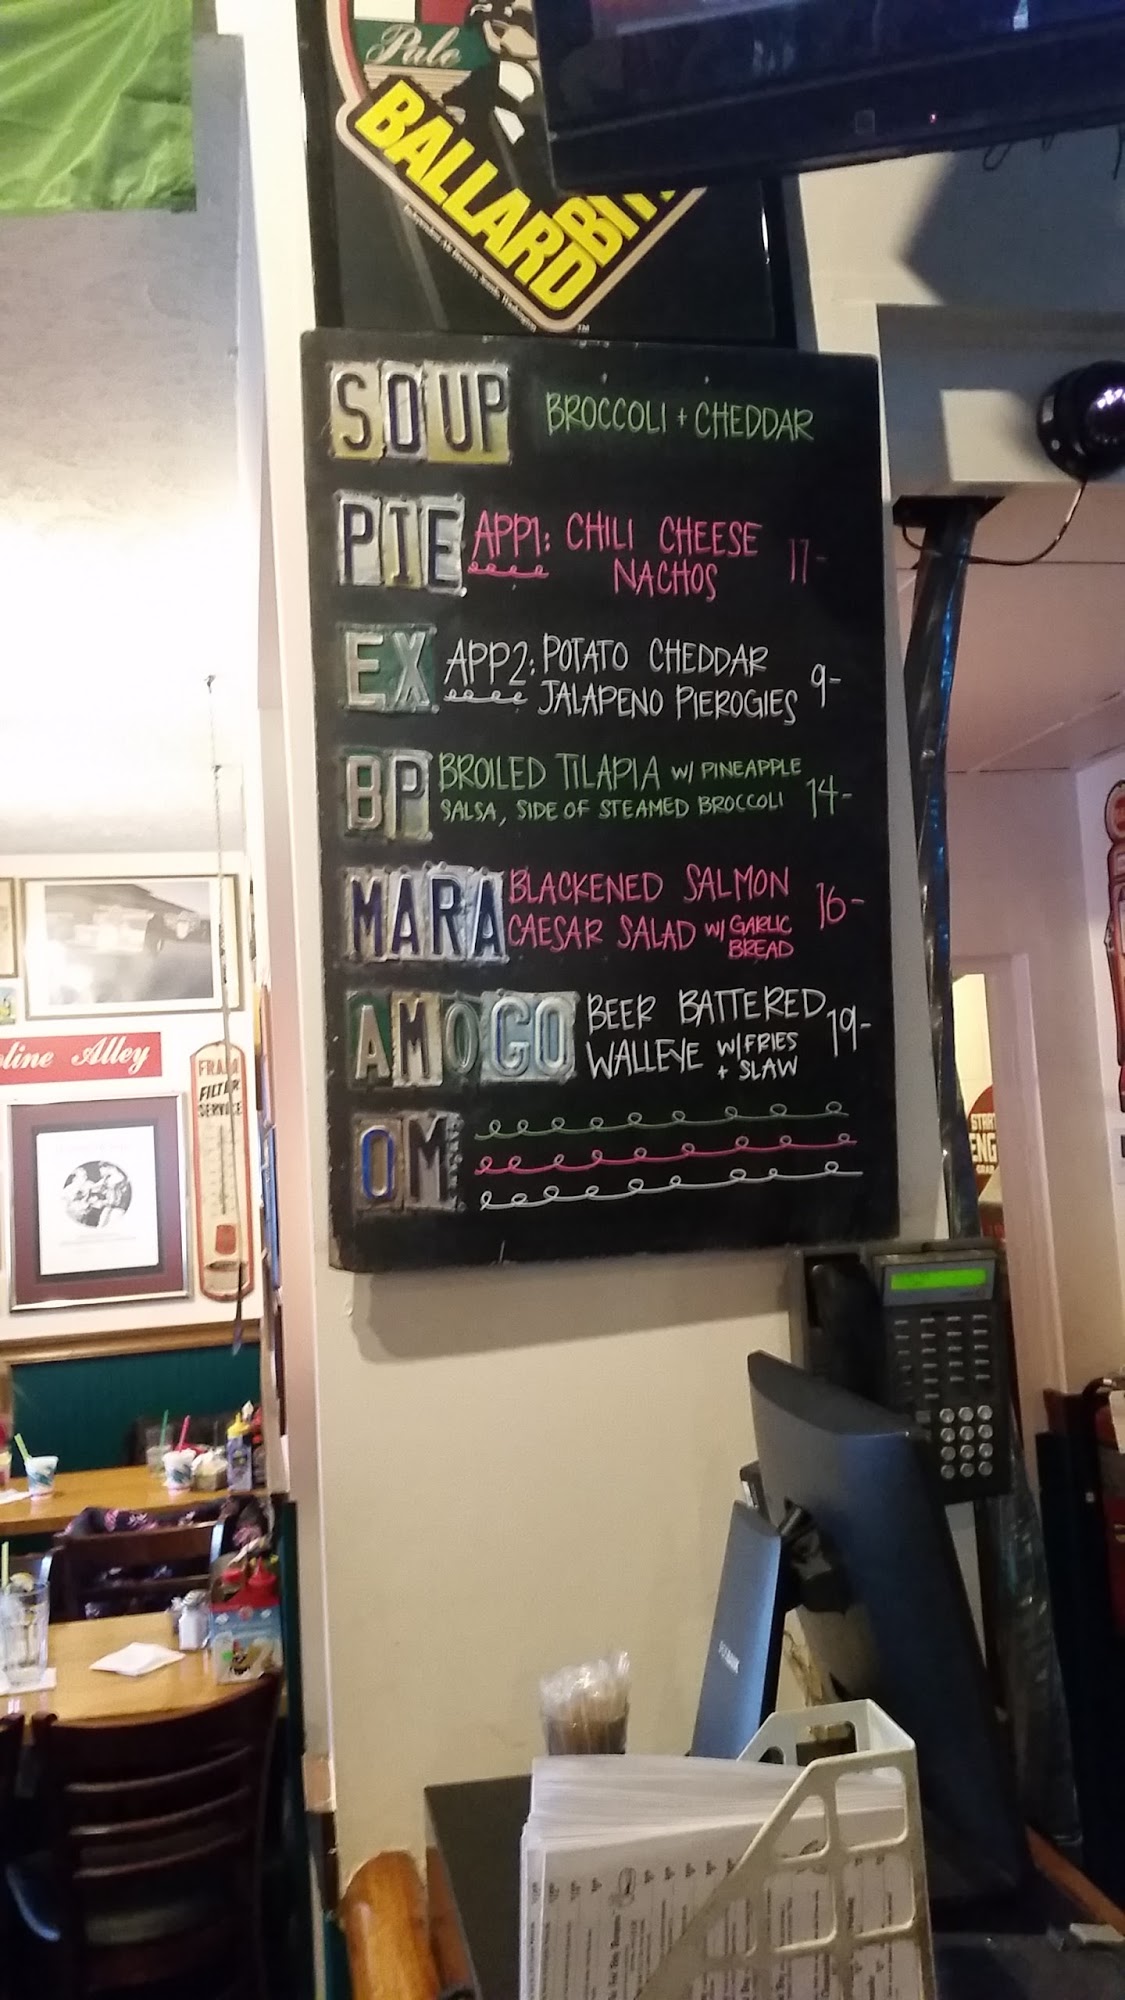 Pale
BALLARD
Independent Ale Brewery, Seattle, Washington
TM
SOUP BROCCOLI + CHEDDAR
PIE APP1: CHILI CHEESE 11-
NACHOS
EX APP2: POTATO CHEDDAR 9-
JALAPENO PIEROGIES
BP BROILED TILAPIA W/ PINEAPPLE 14-
SALSA, SIDE OF STEAMED BROCCOLI
MARA BLACKENED SALMON 16-
CAESAR SALAD W/ GARLIC
BREAD
AMOGO BEER BATTERED 19-
WALLEYE W/ FRIES
+ SLAW
OM
oline Alley
FRAM
FILTER
SERVICE
START
ENG